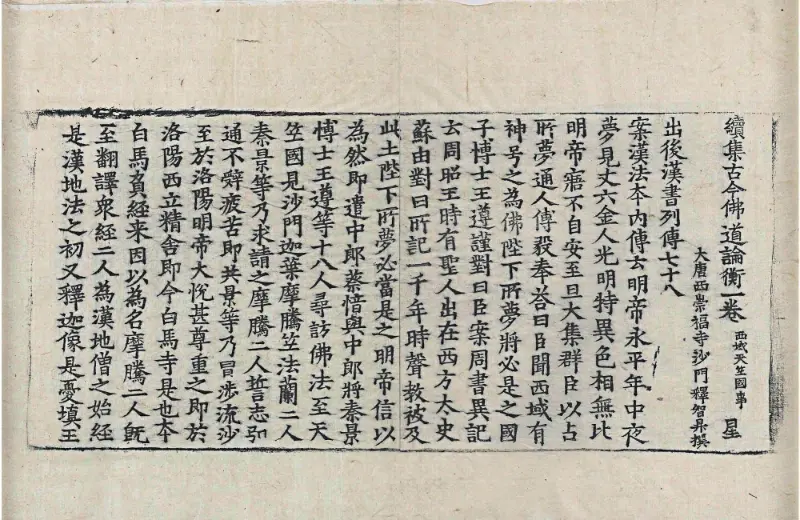 續集古今佛道論衡一卷 西域天竺國事 星
大唐西崇福寺沙門釋智昇撰
出後漢書列傳七十八
案漢法本內傳云明帝永平年中夜
夢見丈六金人光明特異色相無比
明帝寤不自安至旦大集群臣以占
所夢通人傅毅奉荅曰臣聞西域有
神号之為佛陛下所夢將必是之國
子博士王遵謹對曰臣案周書異記
云周昭王時有聖人出在西方太史
蘇由對曰所記一千年時聲教被及
此土陛下所夢必當是之明帝信以
為然即遣中郎蔡愔與中郎將秦景
博士王遵等十八人尋訪佛法至天
竺國見沙門迦葉摩騰竺法蘭二人
秦景等乃求請之摩騰二人誓志弘
通不辤疲苦即共景等乃冒涉流沙
至於洛陽明帝大悅甚尊重之即於
洛陽西立精舍即今白馬寺是也本
白馬負経来因以為名摩騰二人旣
至翻譯衆經二人為漢地僧之始経
是漢地法之初又釋迦像是憂填王